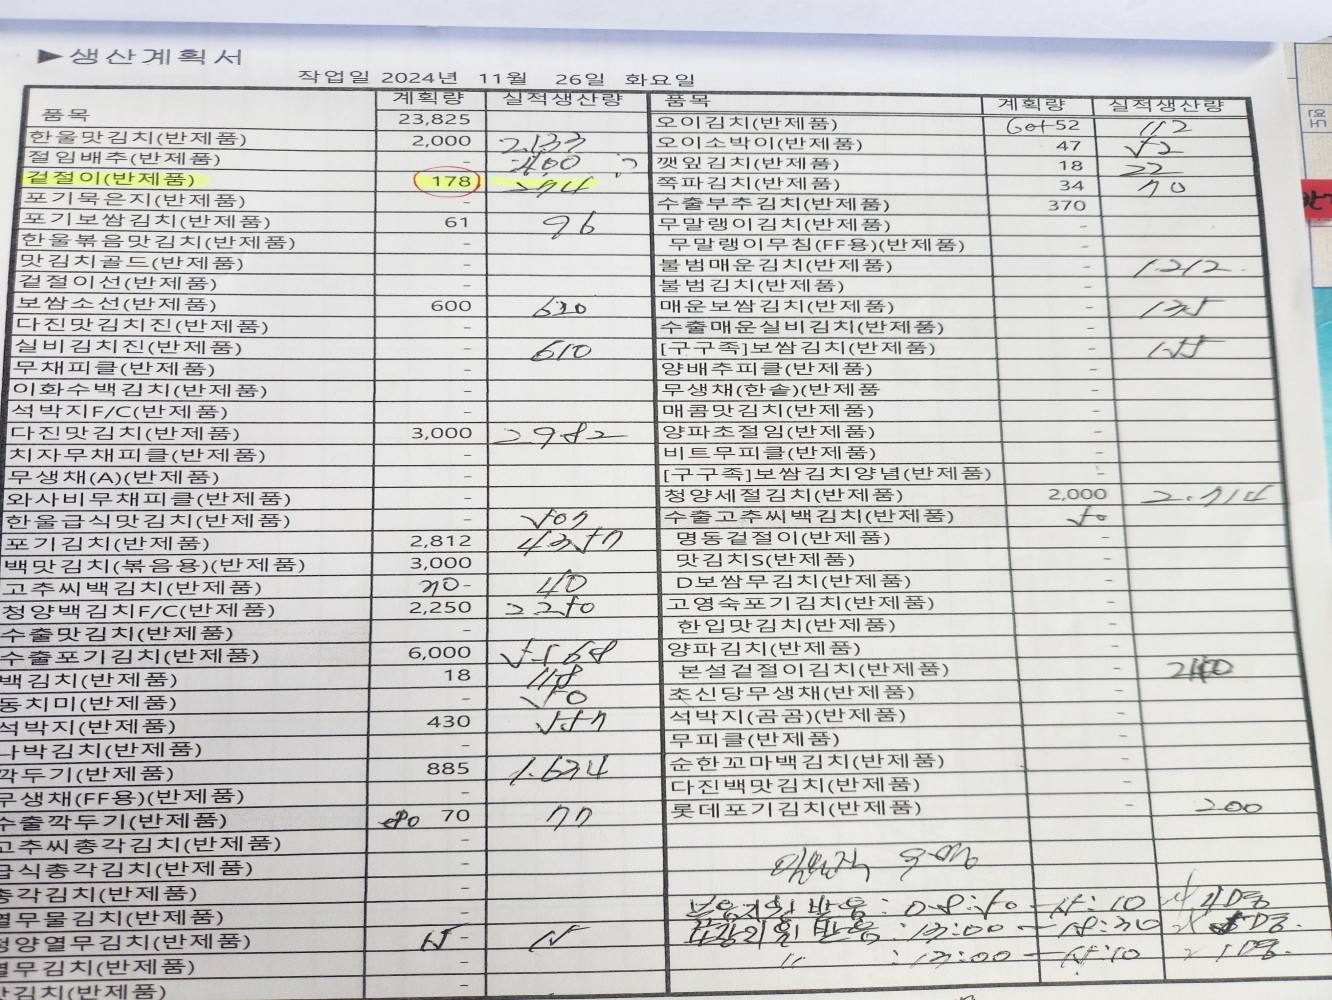 ▶생산계획서
작업일 2024년 11월 26일 화요일
품목 계획량 실적생산량
23,825
한울맛김치(반제품) 2,000 2.133
절임배추(반제품) -
겉절이(반제품) 178 274
포기묵은지(반제품) -
포기보쌈김치(반제품) 61 96
한울볶음맛김치(반제품) -
맛김치골드(반제품) -
겉절이선(반제품) -
보쌈소선(반제품) 600 630
다진맛김치진(반제품) -
실비김치진(반제품) - 610
무채피클(반제품) -
이화수백김치(반제품) -
석박지F/C(반제품) -
다진맛김치(반제품) 3,000 2.982
치자무채피클(반제품) -
무생채(A)(반제품) -
와사비무채피클(반제품) -
한울급식맛김치(반제품) - 507
포기김치(반제품) 2,812 4357
백맛김치(볶음용)(반제품) 3,000
고추씨백김치(반제품) 70 - 40
청양백김치F/C(반제품) 2,250 2.250
수출맛김치(반제품) -
수출포기김치(반제품) 6,000 5.568
백김치(반제품) 18 118
동치미(반제품) - 50
석박지(반제품) 430 557
나박김치(반제품) -
깍두기(반제품) 885 1.634
무생채(FF용)(반제품) -
수출깍두기(반제품) 70 77
고추씨총각김치(반제품) -
급식총각김치(반제품) -
총각김치(반제품) -
열무물김치(반제품) -
청양열무김치(반제품) 15 - 15
열무김치(반제품) -
김치(반제품) -
품목 계획량 실적생산량
오이김치(반제품) 60+52 112
오이소박이(반제품) 47 52
깻잎김치(반제품) 18 22
쪽파김치(반제품) 34 70
수출부추김치(반제품) 370
무말랭이김치(반제품) -
무말랭이무침(FF용)(반제품) -
불범매운김치(반제품) - 1.212
불범김치(반제품) -
매운보쌈김치(반제품) - 135
수출매운실비김치(반제품) -
[구구족]보쌈김치(반제품) - 155
양배추피클(반제품) -
무생채(한솥)(반제품 -
매콤맛김치(반제품) -
양파초절임(반제품) -
비트무피클(반제품) -
[구구족]보쌈김치양념(반제품) -
청양세절김치(반제품) 2,000 2.714
수출고추씨백김치(반제품) 50
명동겉절이(반제품) -
맛김치S(반제품) -
D보쌈무김치(반제품) -
고영숙포기김치(반제품) -
한입맛김치(반제품) -
양파김치(반제품) -
본설겉절이김치(반제품) -
초신당무생채(반제품) -
석박지(곰곰)(반제품) -
무피클(반제품) -
순한꼬마백김치(반제품) -
다진백맛김치(반제품) -
롯데포기김치(반제품) - 200
: 08:50 - 15:10 4명
: 13:00 - 18:30
" : 13:00 - 15:10 1명.